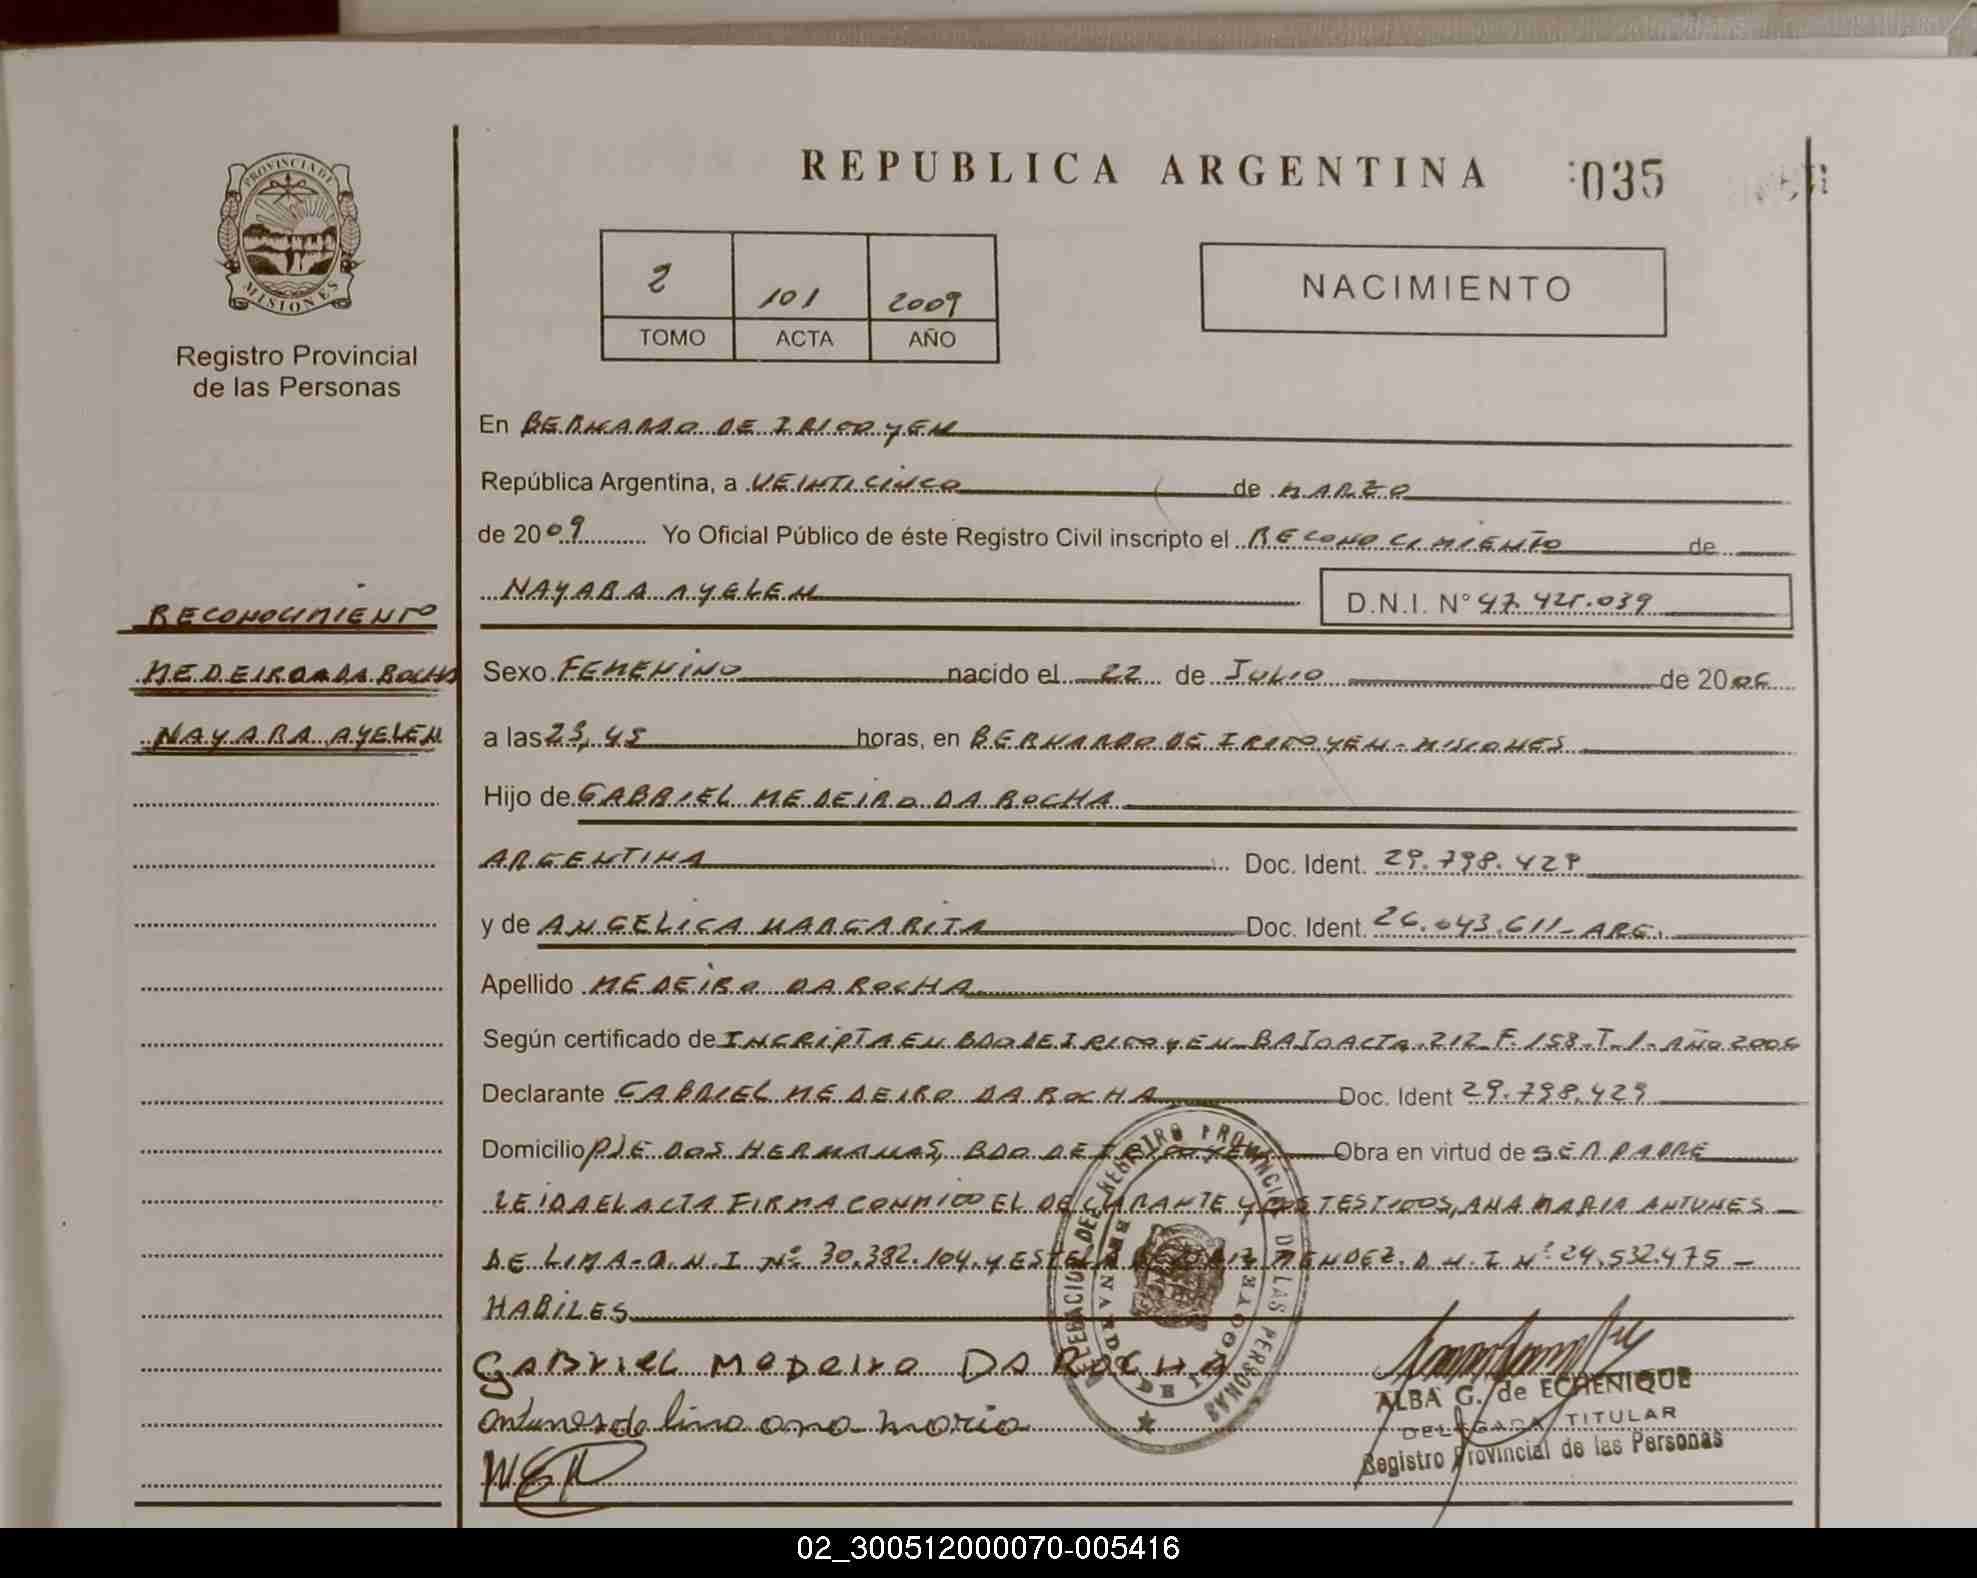 REPUBLICA ARGENTINA
035
PROVINCIA DE
MISIONES
Registro Provincial
de las Personas
2 101 2009
TOMO ACTA AÑO
NACIMIENTO
En BERNARDO DE IRIGOYEN
República Argentina, a VEINTICINCO de MARZO
de 2009 Yo Oficial Público de éste Registro Civil inscripto el RECONOCIMIENTO de
NAYARA AYELEN
D.N.I. N° 47.425.039
RECONOCIMIENTO
MEDEIRO DA ROCHA
NAYARA AYELEN
Sexo FEMENINO nacido el 22 de JULIO de 2006
a las 23,45 horas, en BERNARDO DE IRIGOYEN - MISIONES
Hijo de GABRIEL MEDEIRO DA ROCHA
ARGENTINA Doc. Ident. 29.798.429
y de ANGELICA MARGARITA Doc. Ident. 26.043.611- ARG.
Apellido MEDEIRO DA ROCHA
Según certificado de INCRIPTA EN BDO DE IRIGOYEN- BAJO ACTA.212 F.158.T.1- AÑO 2006
Declarante GABRIEL MEDEIRO DA ROCHA Doc. Ident 29.798.429
Domicilio PJE DOS HERMANAS, BDO DE IRIGOYEN Obra en virtud de SER PADRE
LEIDA EL ACTA FIRMA CONMIGO EL DECLARANTE Y DOS TESTIGOS, ANA MARIA ANTUNES
DE LIMA- D.N.I Nº 30.382.104. Y ESTELA BEATRIZ MENDEZ. D.N.I Nº 24.532.475 -
HABILES
Gabriel Medeiro DA ROCHA
Antunes de lima ana maria
DELEGACION DEL REGISTRO PROVINCIAL DE LAS PERSONAS
BERNARDO DE IRIGOYEN
ALBA G. de ECHENIQUE
DELEGADA TITULAR
Registro Provincial de las Personas
02_300512000070-005416